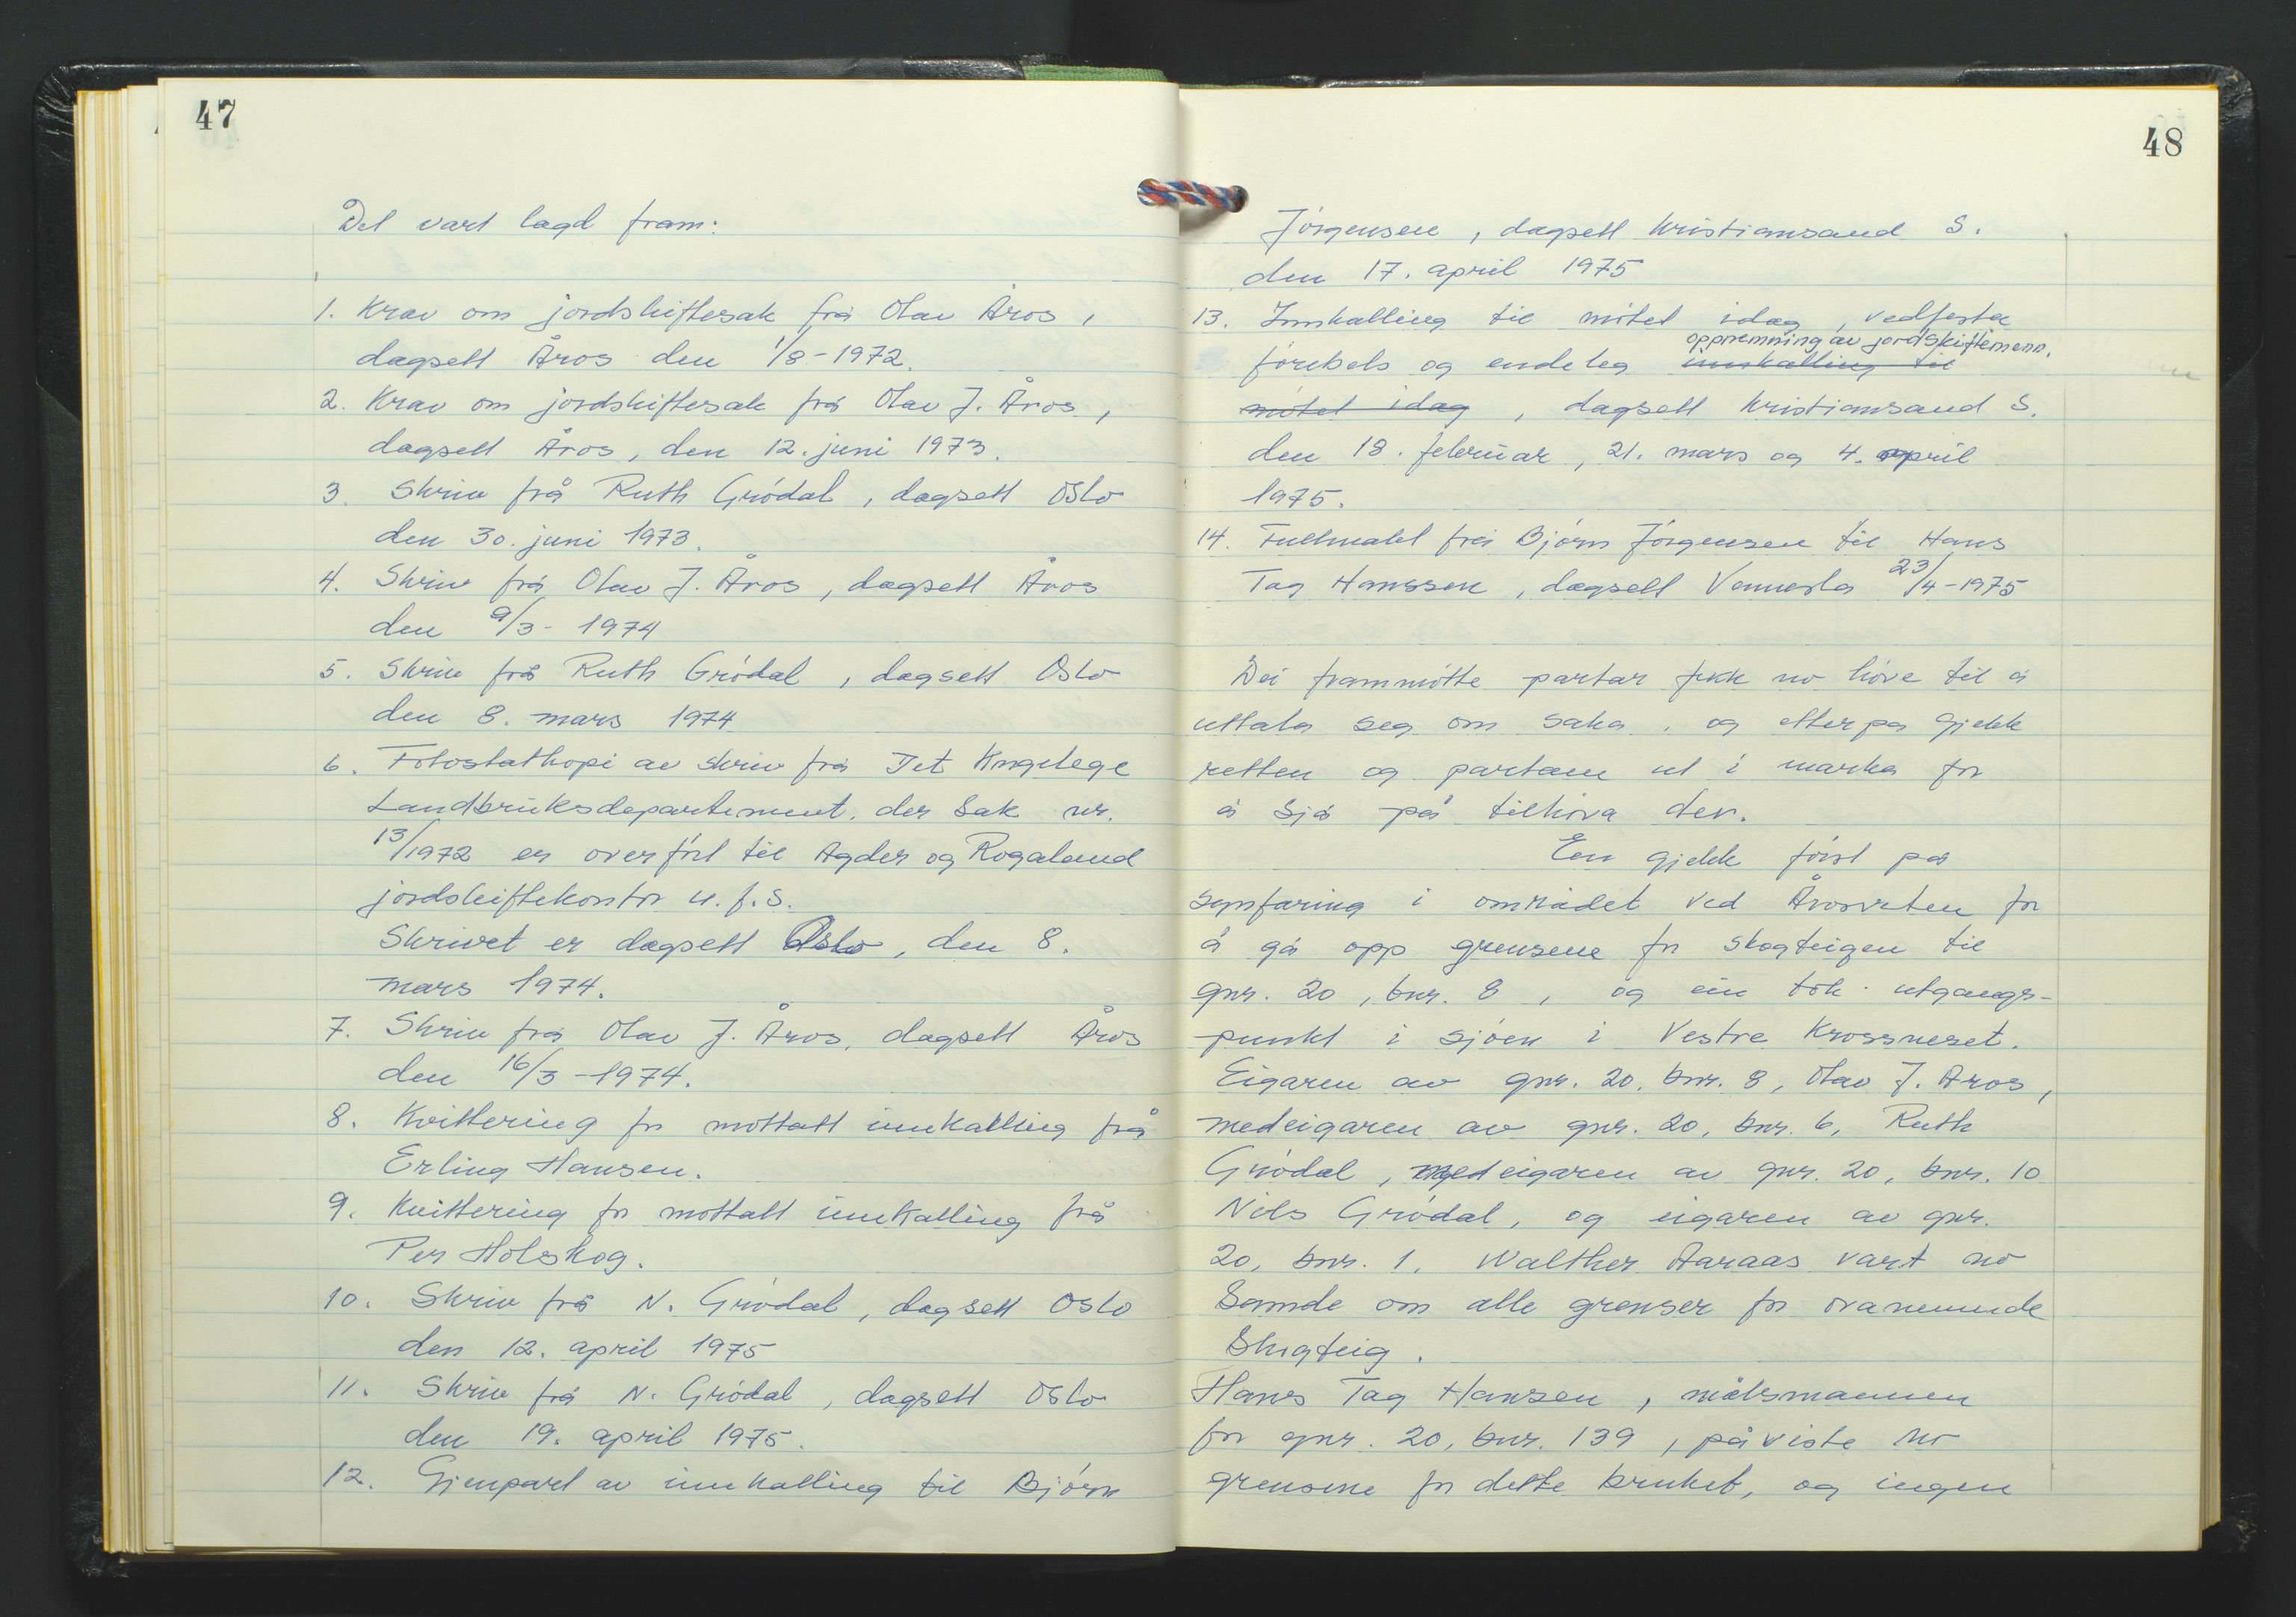 47
Det vart lagd fram:
1. Krav om jordskiftesak frå Olav Åros,
dagsett Åros den 1/8-1972.
2. Krav om jordskiftesak frå Olav J. Åros,
dagsett Åros, den 12. juni 1973.
3. Skriv frå Ruth Grödal, dagsett Oslo
den 30. juni 1973.
4. Skriv frå Olav J. Åros, dagsett Åros
den 9/3-1974
5. Skriv frå Ruth Grödal, dagsett Oslo
den 8. mars 1974
6. Fotostatkopi av skriv frå Det Kngelege
Landbruksdepartement, der sak nr.
13/1972 er overfört til Agder og Rogaland
jordskiftekontor u.f.s.
Skrivet er dagsett Oslo, den 8.
mars 1974.
7. Skriv frå Olav J. Åros, dagsett Åros
den 16/3-1974.
8. Kvittering for mottatt innkalling frå
Erling Hansen.
9. Kvittering for mottatt innkalling frå
Per Holskog.
10. Skriv frå N. Grödal, dagsett Oslo
den 12. april 1975
11. Skriv frå N. Grödal, dagsett Oslo
den 19. april 1975.
12. Gjenpart av innkalling til Björn
48
Jörgensen, dagsett Kristiansand S.
den 17. april 1975
13. Innkalling til mötet idag, vedfesta
oppnemning av jordskiftemenn.
förebels og endeleg innkalling til
mötet idag, dagsett Kristiansand S.
den 18. februar, 21. mars og 4. april
1975.
14. Fullmakt frå Björn Jörgensen til Hans
Tag Hanssen, dagsett Vennesla 23/4-1975
Dei frammötte partar fekk no höve til å
uttala seg om saka, og etterpå gjekk
retten og partane ut i marka for
å sjå på tilhöva der.
Ein gjekk först på
synfaring i området ved Årosveten for
å gå opp grensene for skogteigen til
gnr. 20, bnr. 8, og ein tok utgangs-
punkt i sjöen i Vestre Krossneset.
Eigaren av gnr. 20, bnr. 8, Olav J. Åros,
medeigaren av gnr. 20, bnr. 6, Ruth
Grödal, medeigaren av gnr. 20, bnr. 10
Nils Grödal, og eigaren av gnr.
20, bnr. 1, Walther Aaraas vart no
samde om alle grenser for ovanemnde
Skogteig.
Hans Tag Hansen, målsmannen
for gnr. 20, bnr. 139, påviste no
grensene for dette bruket, og ingen